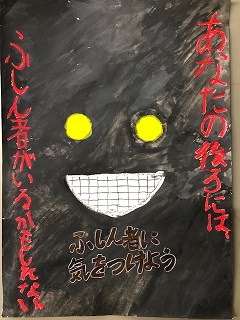 あなたの後ろには、
ふしん者がいるかもしれない
ふしん者に
気をつけよう